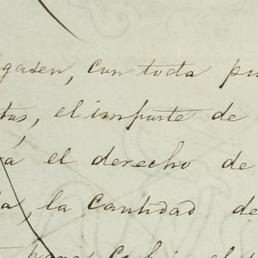 gasen, con toda pu
tas, el importe de
á el derecho de
la, la cantidad de